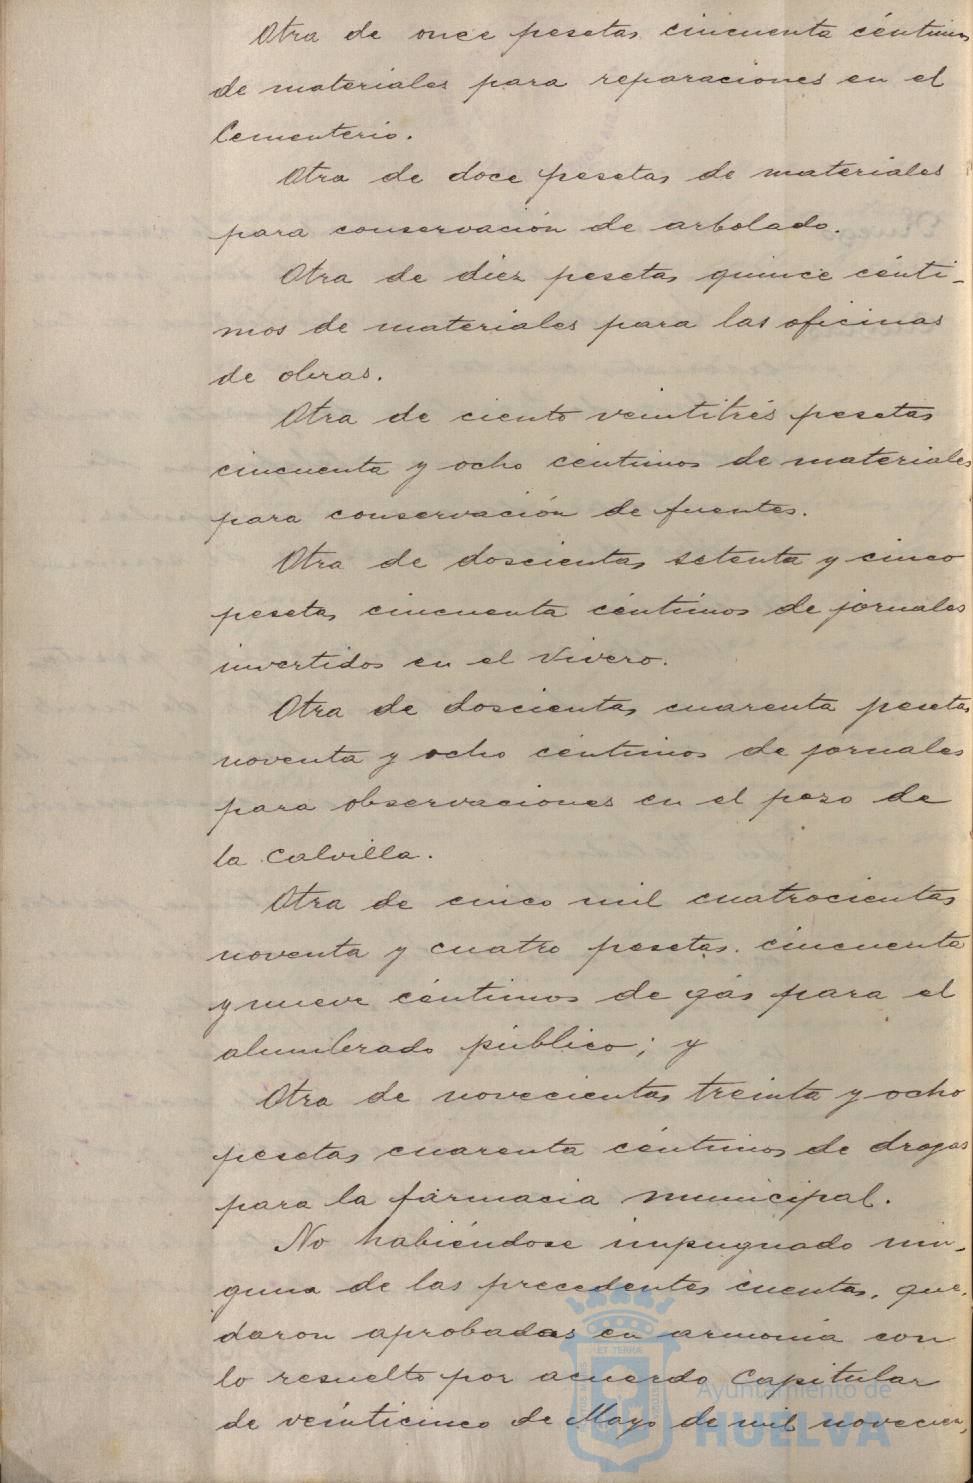 Otra de once pesetas cincuenta céntimos
de materiales para reparaciones en el
Cementerio.
Otra de doce pesetas de materiales
para conservación de arbolado.
Otra de diez pesetas quince cénti-
mos de materiales para las oficinas
de obras.
Otra de ciento veintitrés pesetas
cincuenta y ocho centimos de materiales
para conservación de fuentes.
Otra de doscientas setenta y cinco
pesetas cincuenta céntimos de jornales
invertidos en el Vivero.
Otra de doscientas cuarenta pesetas
noventa y ocho céntimos de jornales
para observaciones en el pozo de
la Calvilla.
Otra de cinco mil cuatrocientas
noventa y cuatro pesetas cincuenta
y nueve céntimos de gás para el
alumbrado público; y
Otra de novecientas treinta y ocho
pesetas cuarenta céntimos de drogas
para la farmacia municipal.
No habiéndose impugnado nin-
guna de las precedentes cuentas, que-
daron aprobadas en armonía con
lo resuelto por acuerdo Capitular
de veinticinco de Mayo de mil novecien-
ET TERRÆ
Ayuntamiento de
HUELVA